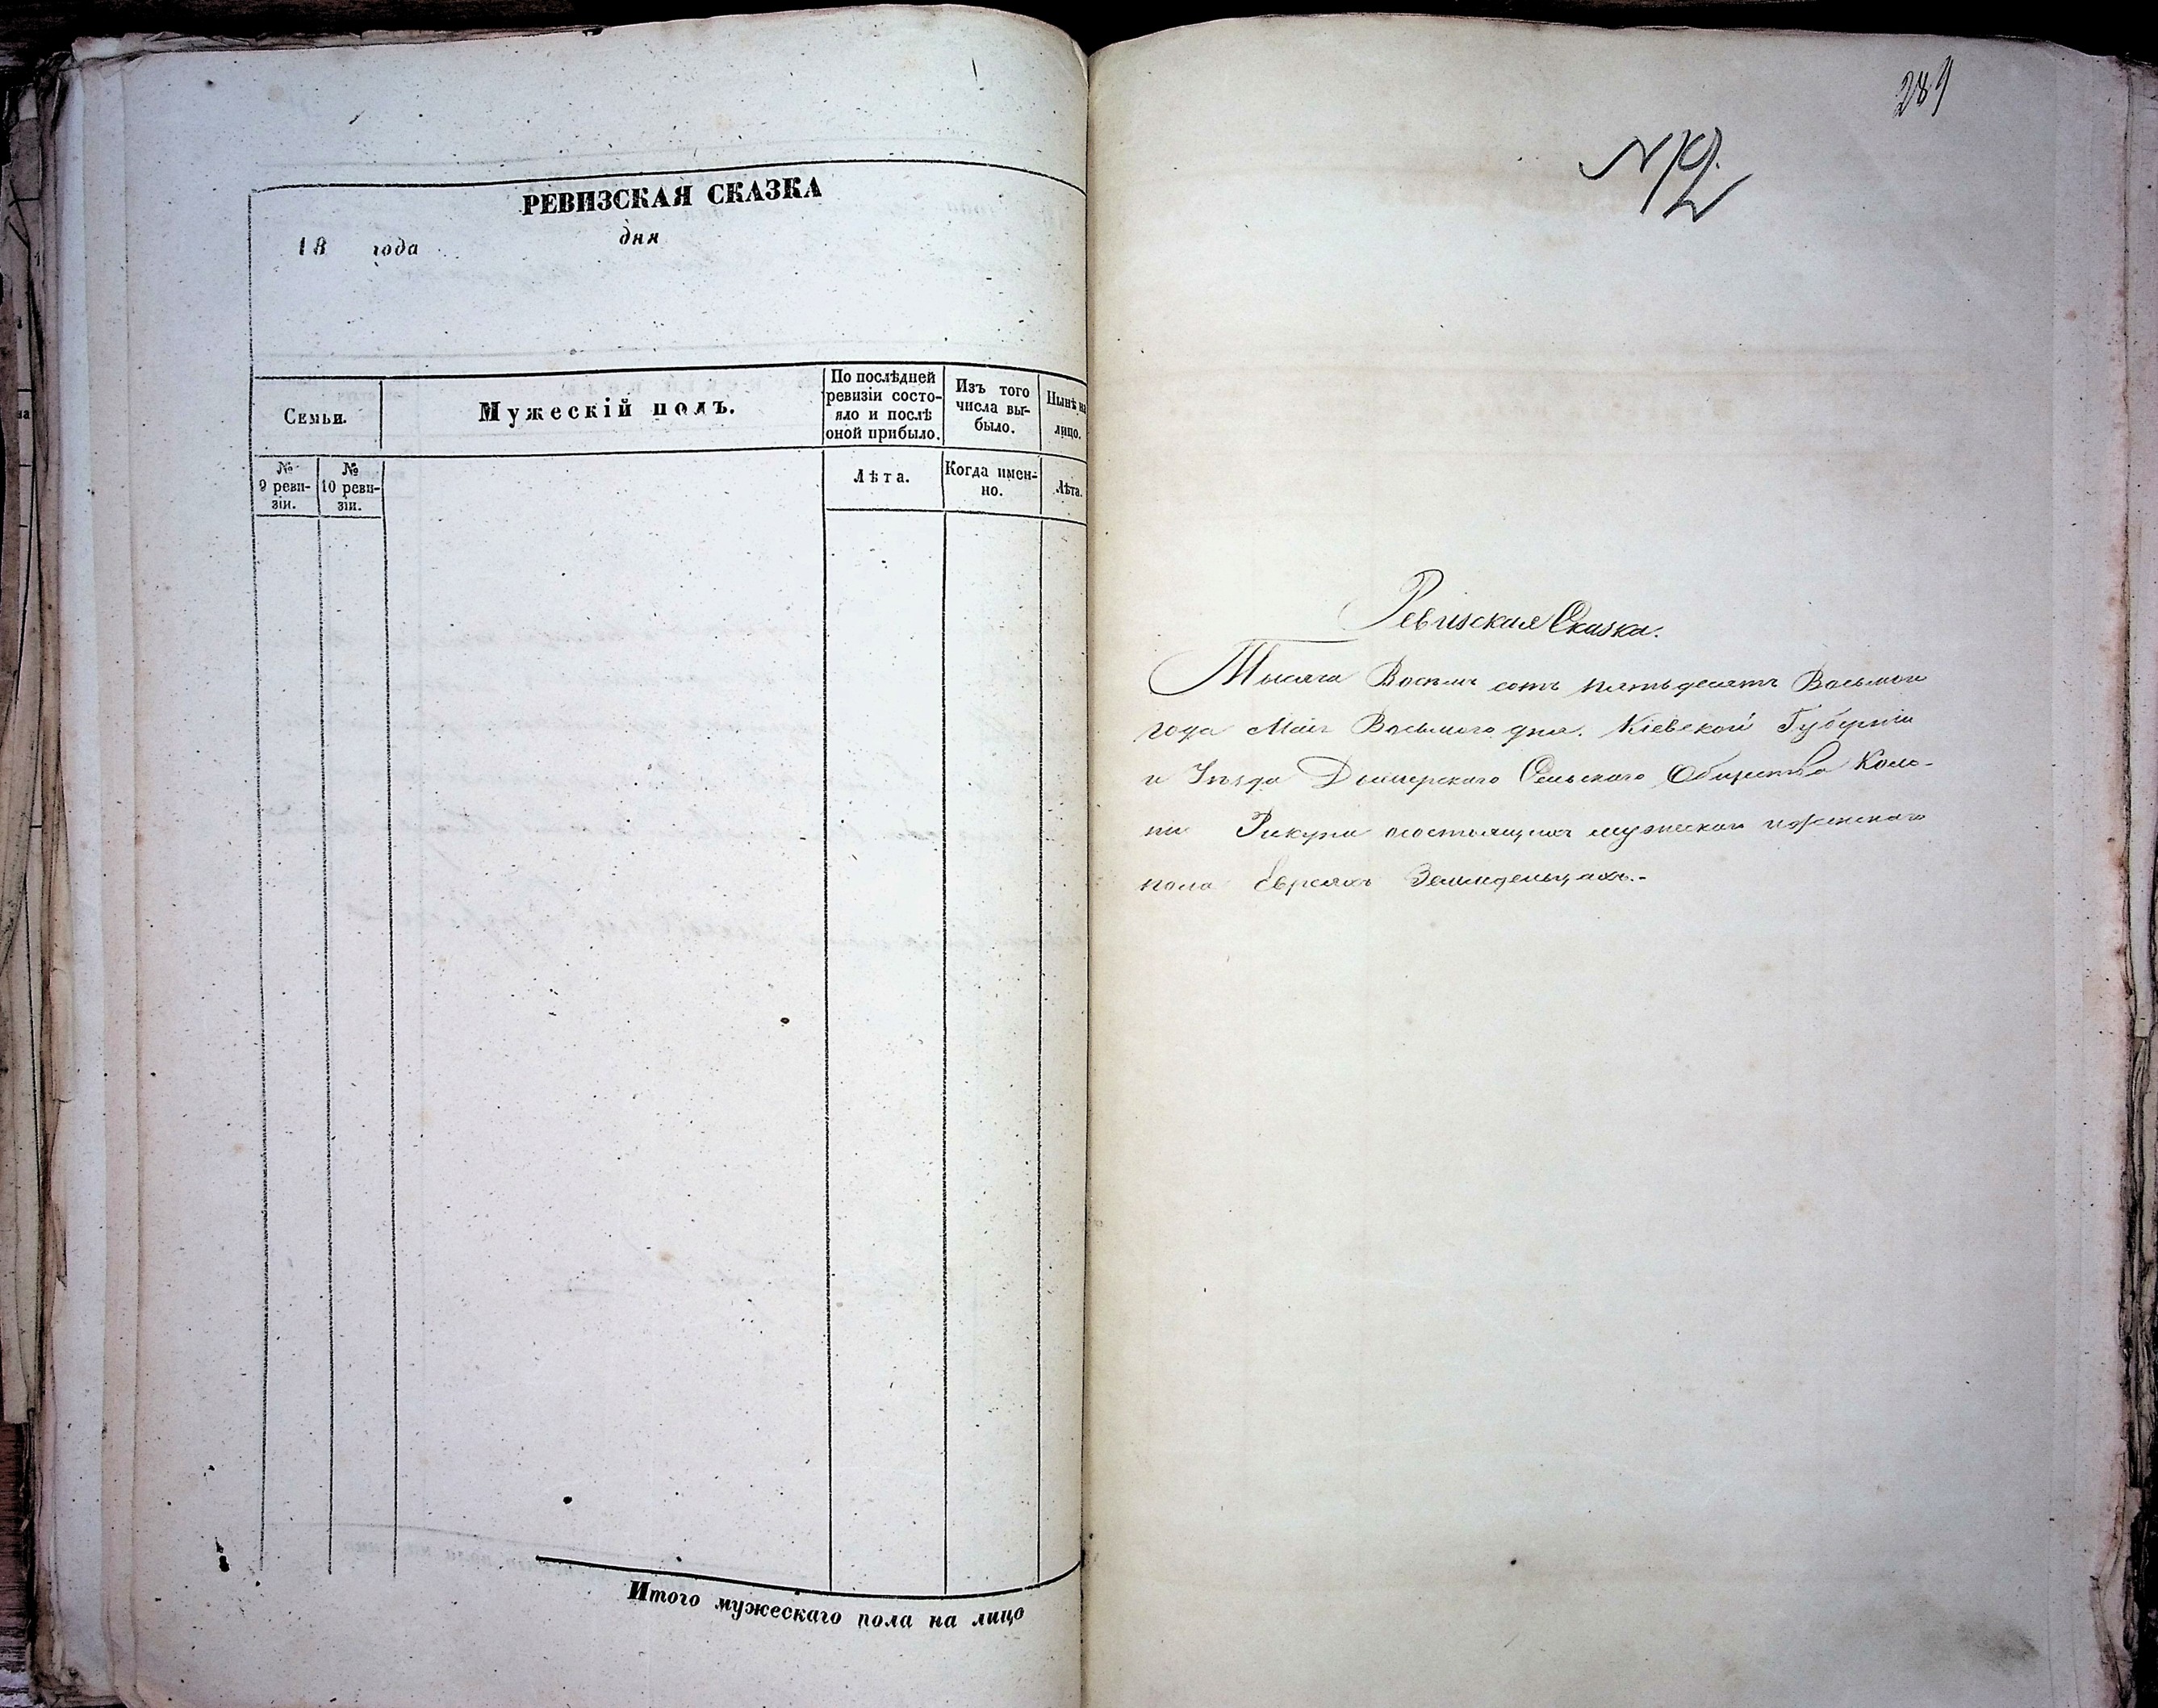 РЕВИЗСКАЯ СКАЗКА
18 года дня
Семьи.
Мужескій полъ.
По послѣдней
ревизіи состо-
яло и послѣ
оной прибыло.
Изъ того
числа вы-
было.
Нынѣ на
лицо.
№
9 реви-
зіи.
№
10 реви-
зіи.
Лѣта.
Когда имен-
но.
Лѣта.
Итого мужескаго пола на лицо
Ревизская Сказка.
Тысяча Восемь сотъ пятьдесятъ Восьмого
года Маія Восьмаго дня. Кіевской Губерніи
и Уѣзда Дымерскаго Сельскаго Общества Коло-
ніи Рикуни о состоящихъ мужеска и женскаго
пола Евреяхъ Земледельцахъ.-